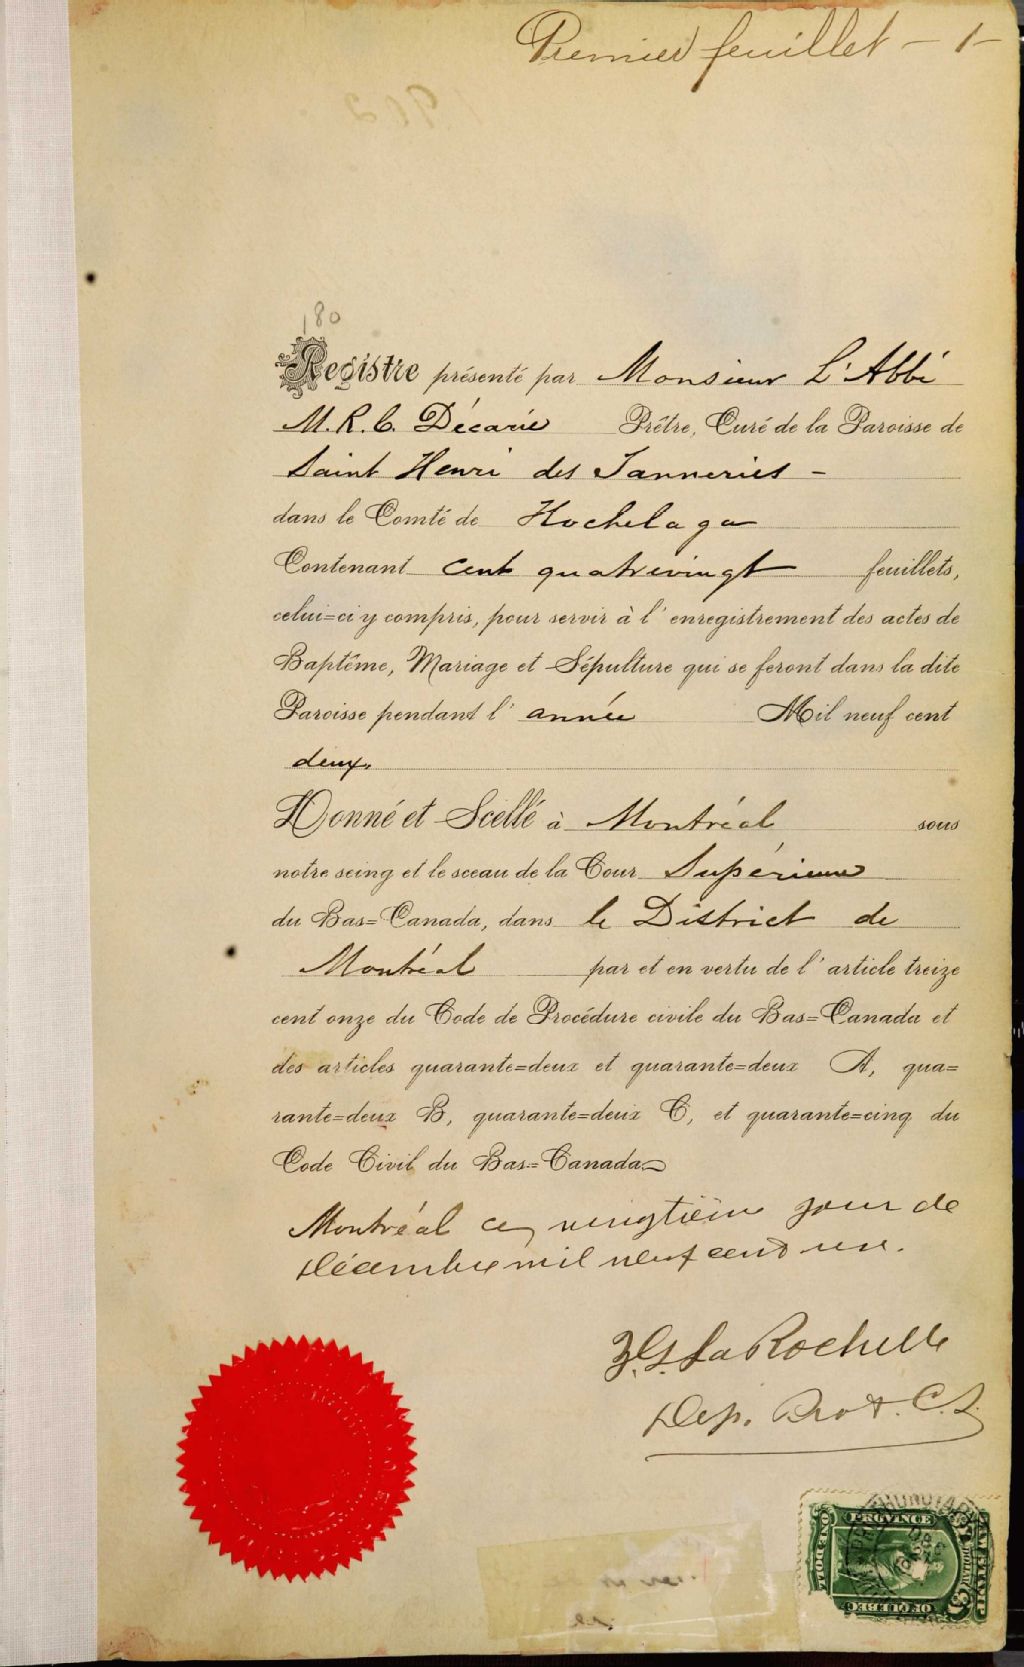 Premier feuillet - 1 -
180
Registre présenté par Monsieur L'Abbé
M. R. C. Décarie Prêtre, Curé de la Paroisse de
Saint Henri des Tanneries -
dans le Comté de Hochelaga
Contenant cent quatrevingt feuillets,
celui=ci y compris, pour servir à l'enregistrement des actes de
Baptême, Mariage et Sépulture qui se feront dans la dite
Paroisse pendant l'année Mil neuf cent
deux.
Donné et Scellé à Montréal sous
notre seing et le sceau de la Cour Supérieure
du Bas=Canada, dans le District de
Montréal par et en vertu de l'article treize
cent onze du Code de Procédure civile du Bas=Canada et
des articles quarante=deux et quarante=deux A, qua=
rante=deux B, quarante=deux C, et quarante=cinq du
Code Civil du Bas=Canada
Montréal ce vingtième jour de
Décembre mil neuf cent un.
LaRochelle
Dep. Prot. C.S.
PROVINCE
OF QUEBEC
ONE DOLLAR